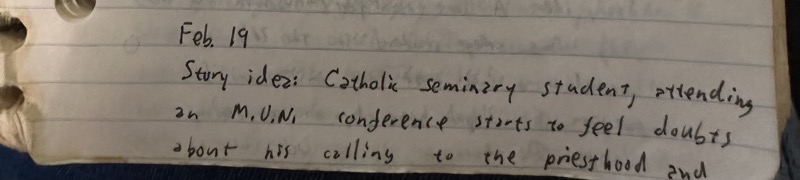 Feb. 19
Story idea: Catholic seminary student, attending
an M.U.N. conference starts to feel doubts
about his calling to the priesthood and